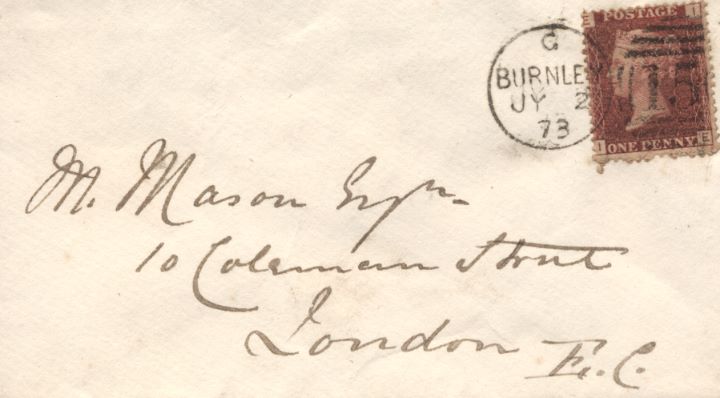 POSTAGE
E I
G
BURNLEY
JY 2
73
I ONE PENNY E
M. Mason Esqre
10 Coleman Street
London
E.C.